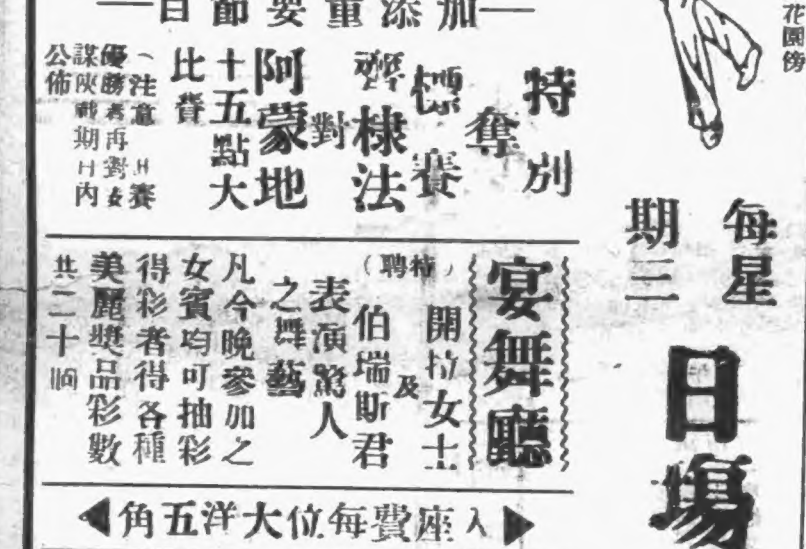 花園傍
每星
期三
日場
加添重要節目
特別
奪
標賽
齊棣法
對
阿蒙地
十五點大
比賽
（注意 賽
優勝者再對
謀決戰期日內
公佈
宴舞廳
（特聘）
開拉女士
及
伯瑞斯君
表演驚人
之舞藝
凡今晚參加之
女賓均可抽彩
得彩者得各種
美麗獎品彩數
共二十個
入座費每位大洋五角